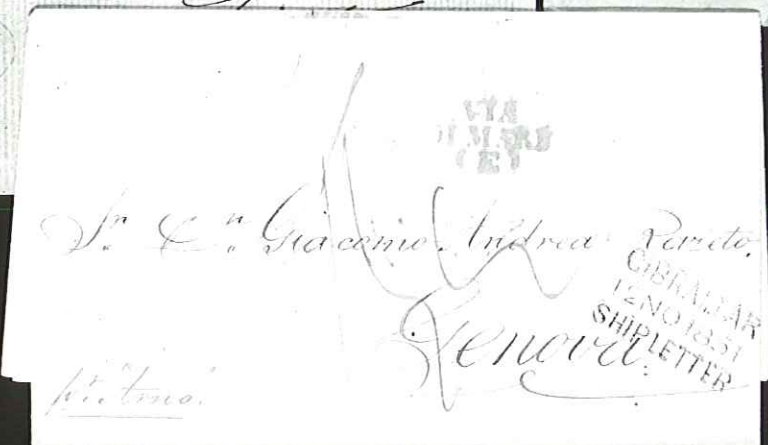 VIA
DI MARE
(E)
Sr. Dn. Giacomo Andrea Pareto.
GIBRALTAR
12 NO 1851
SHIP LETTER
Genova.